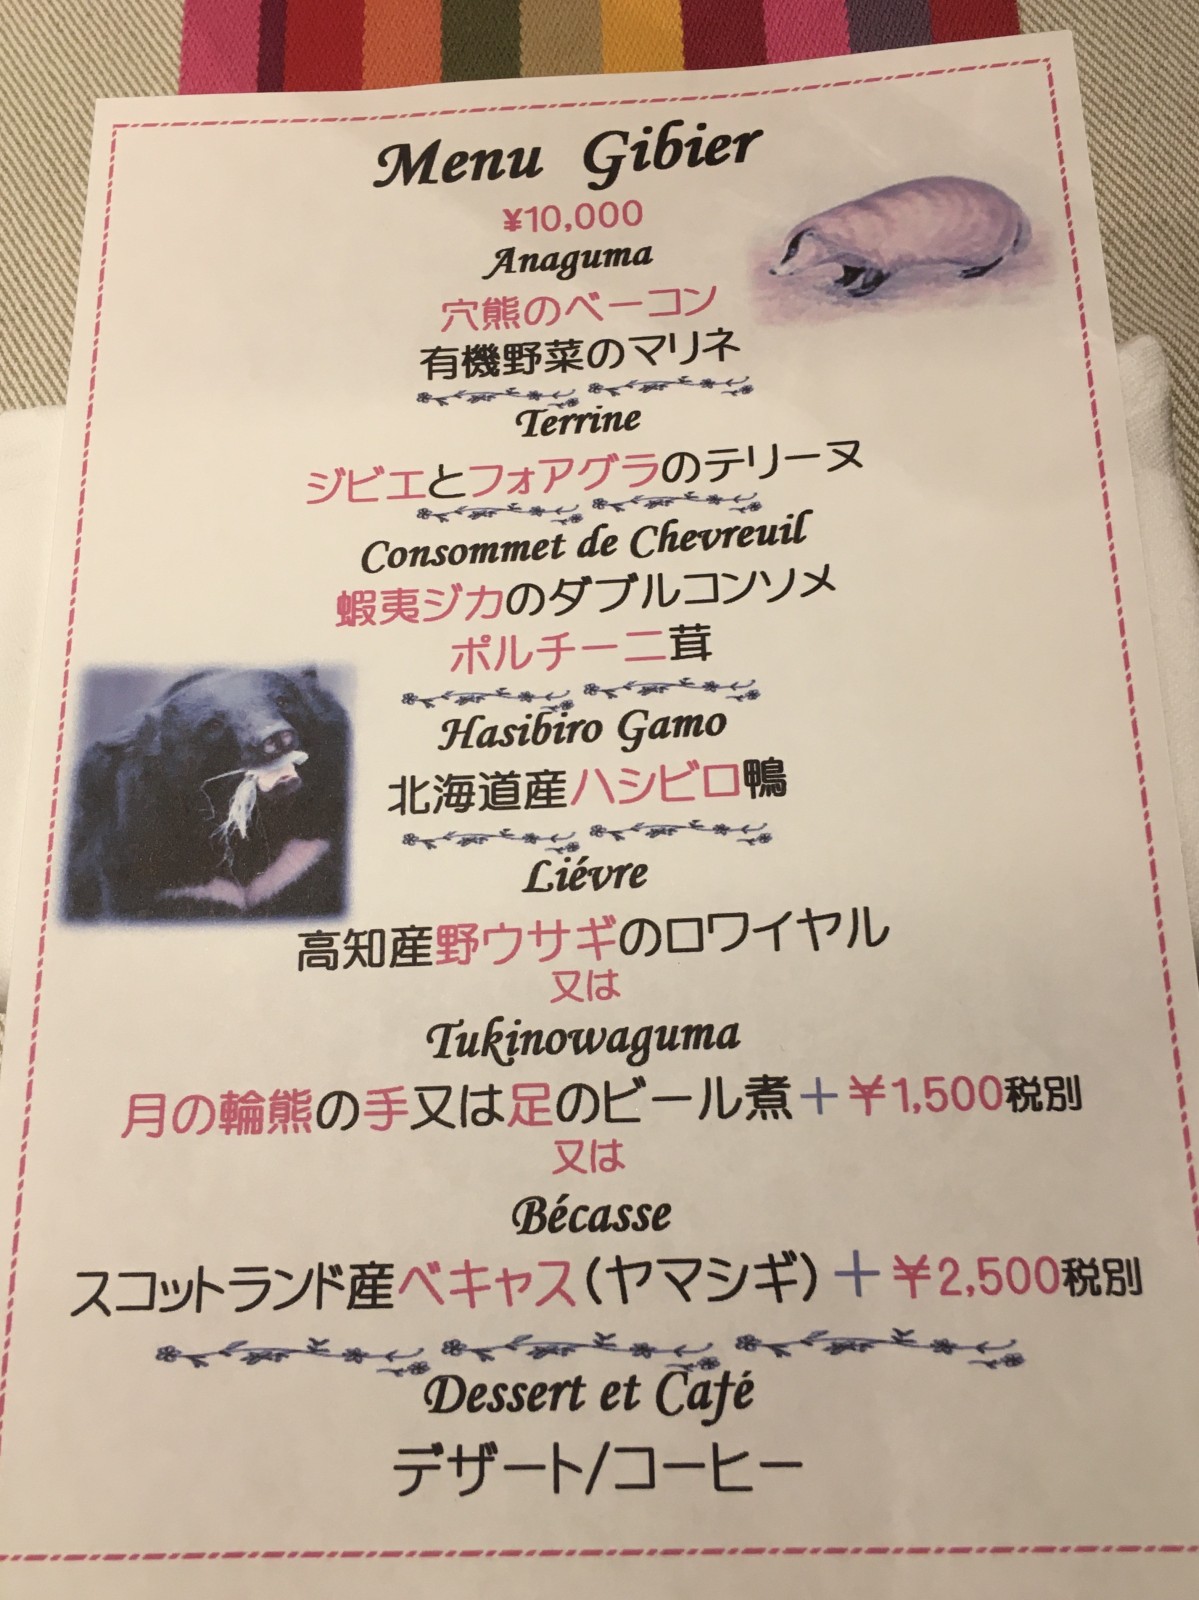 Menu Gibier
¥10,000
Anaguma
穴熊のベーコン
有機野菜のマリネ
Terrine
ジビエとフォアグラのテリーヌ
Consommet de Chevreuil
蝦夷ジカのダブルコンソメ
ポルチーニ茸
Hasibiro Gamo
北海道産ハシビロ鴨
Liévre
高知産野ウサギのロワイヤル
又は
Tukinowaguma
月の輪熊の手又は足のビール煮＋¥1,500税別
又は
Bécasse
スコットランド産ベキャス(ヤマシギ)＋¥2,500税別
Dessert et Café
デザート/コーヒー